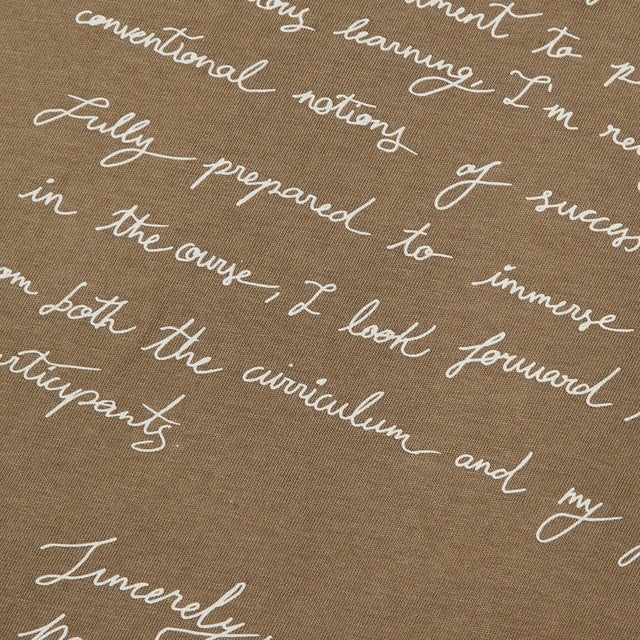 to
learning, I'm
conventional notions of success
Fully prepared to immerse
in the ourse, I look forward
both the curriculum and my
Sincerely,